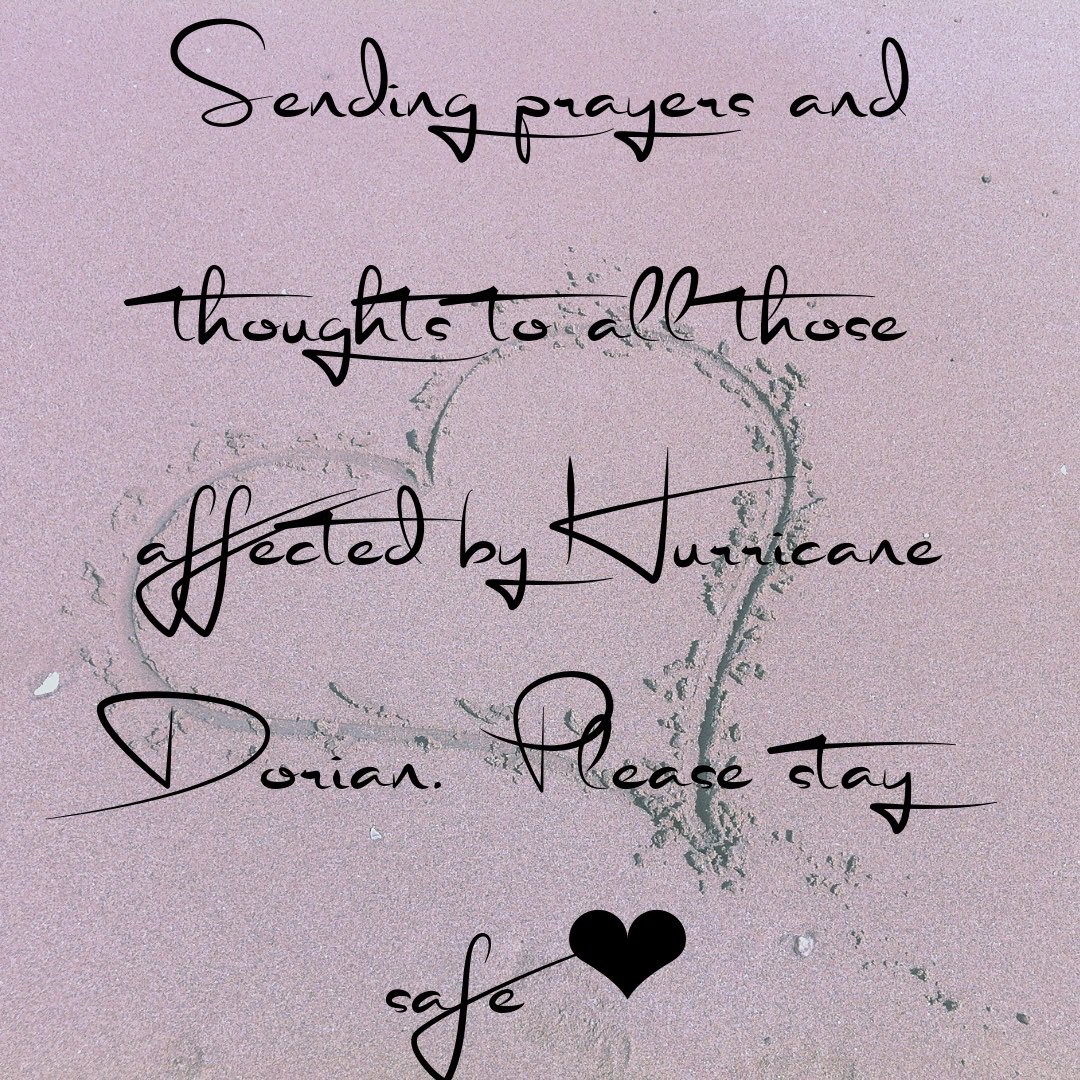 Sending prayers and
thoughts to all those
affected by Hurricane
Dorian. Please stay
safe ♥